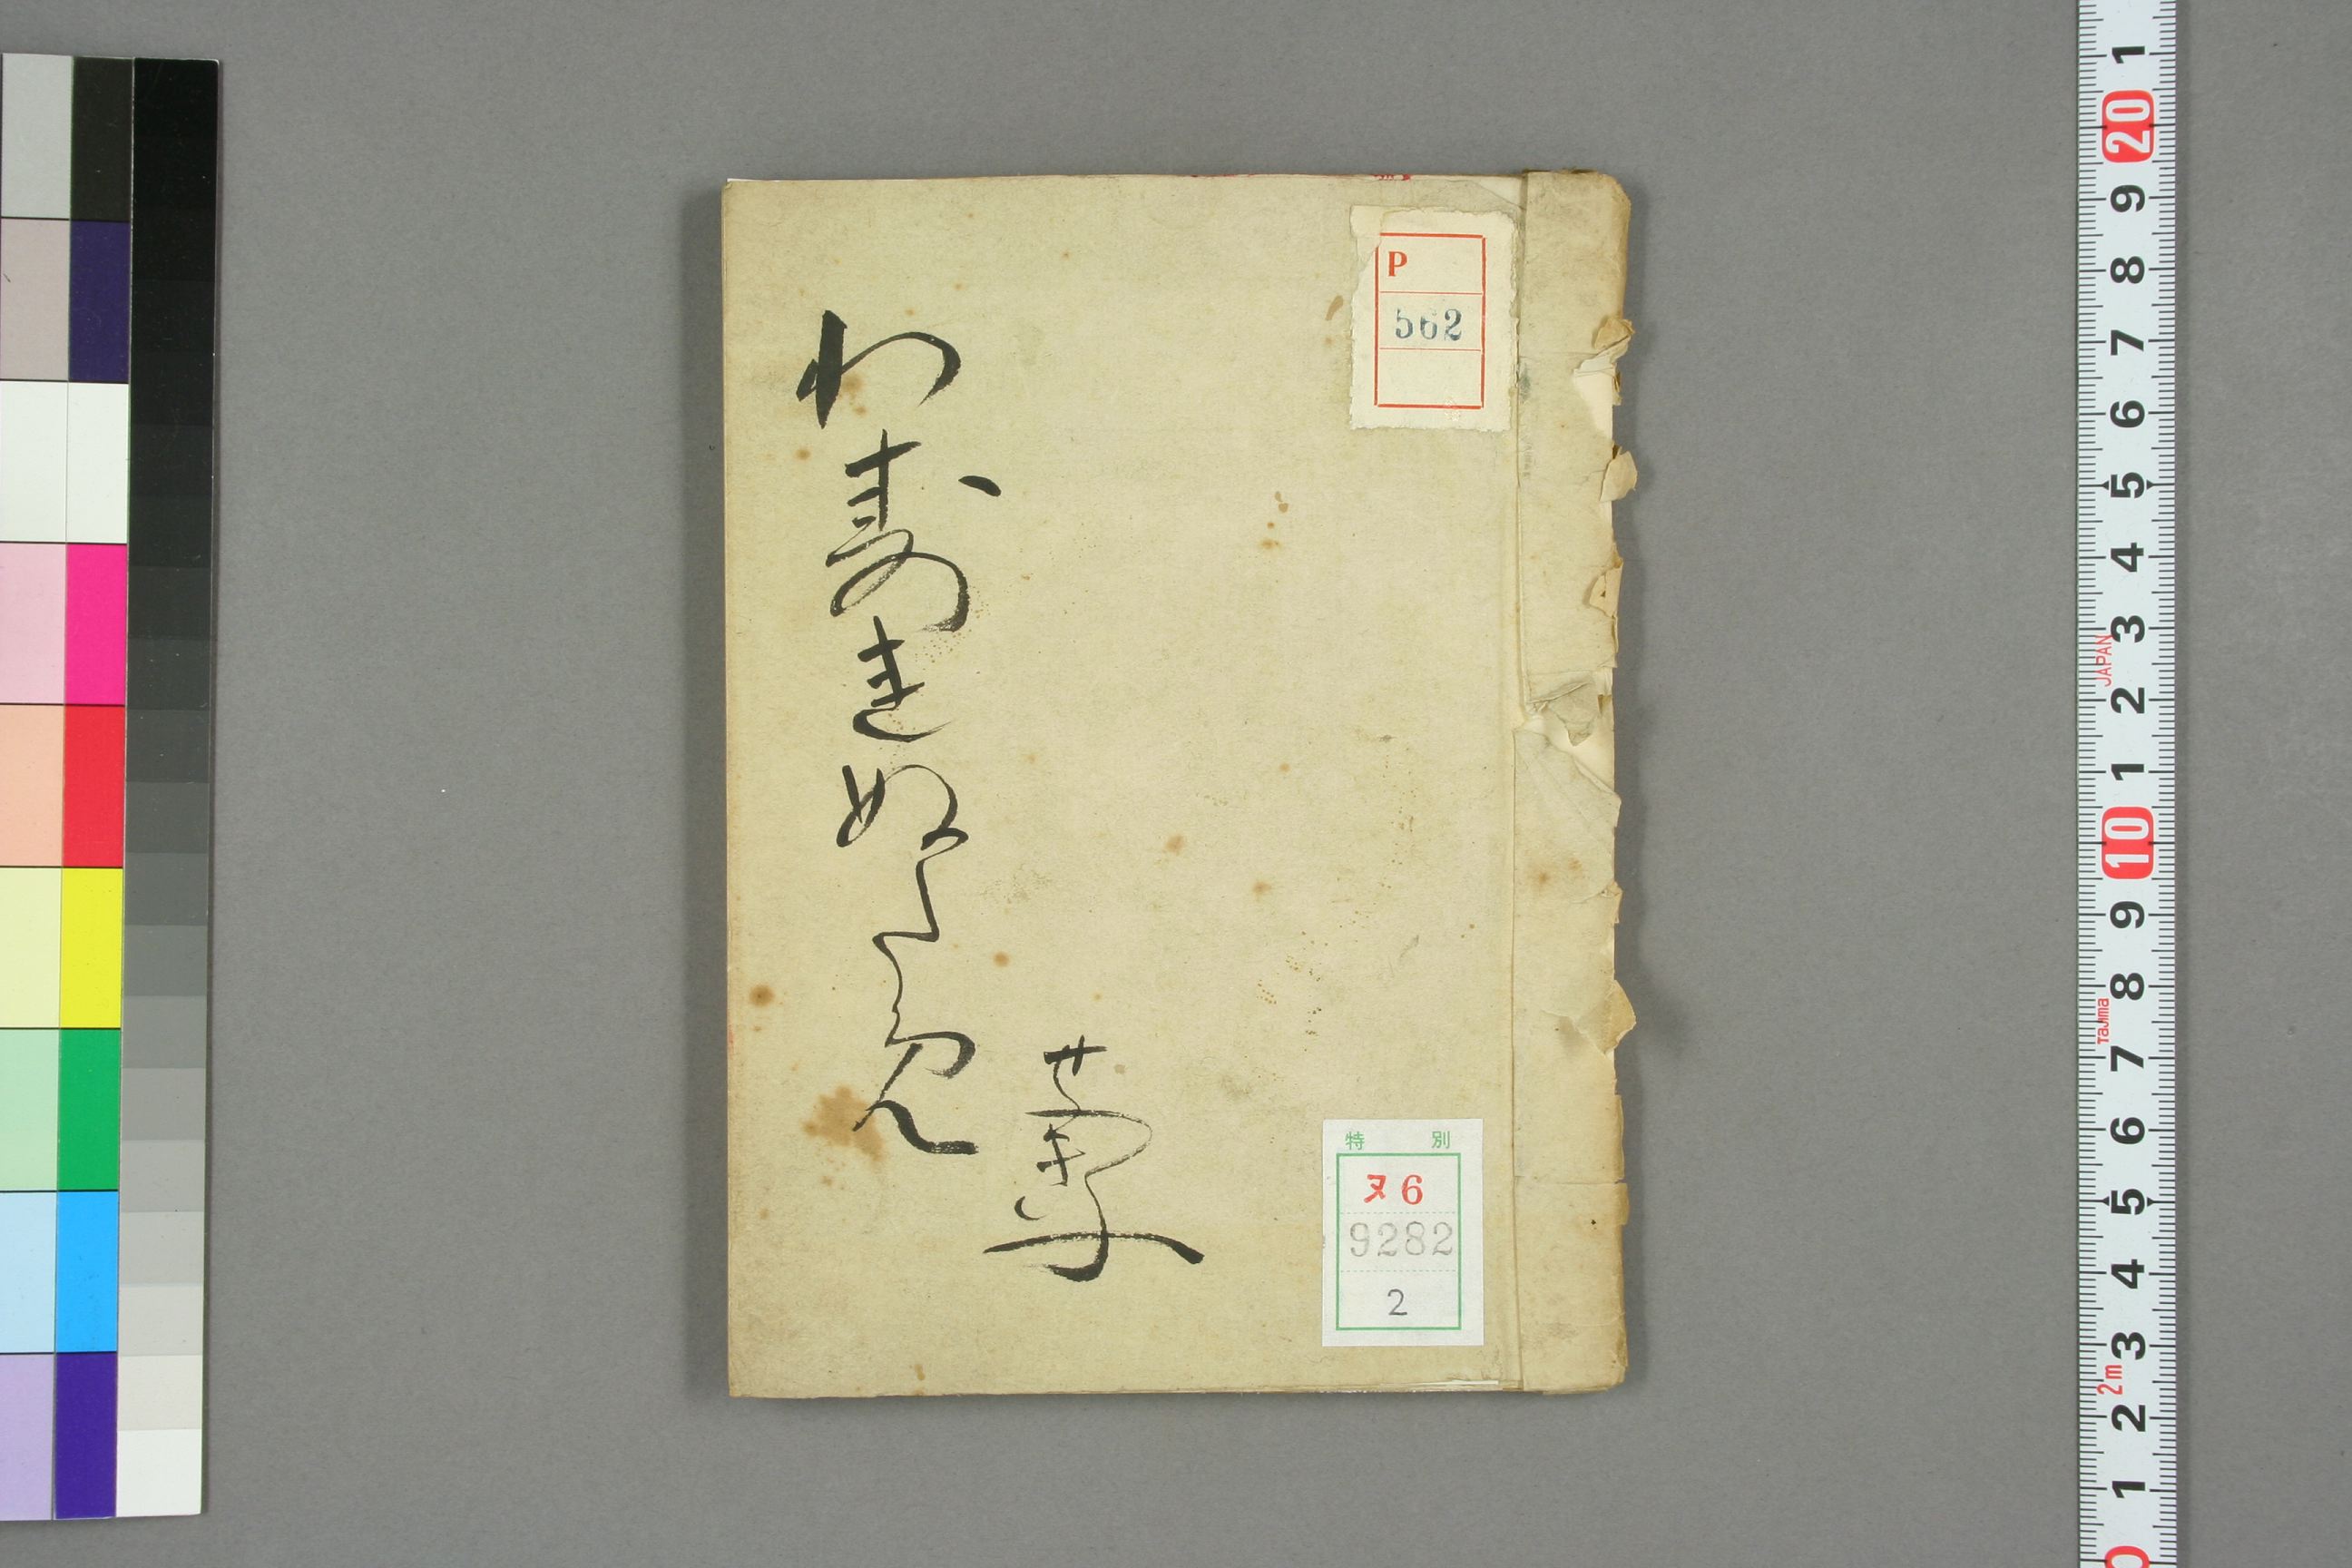 P
562
わすれぬ
特別
ヌ6
9282
2
1
20
9
8
7
6
5
4
3
2
1
10
9
8
7
6
5
4
3
2
1
0
JAPAN
Tajima
2m